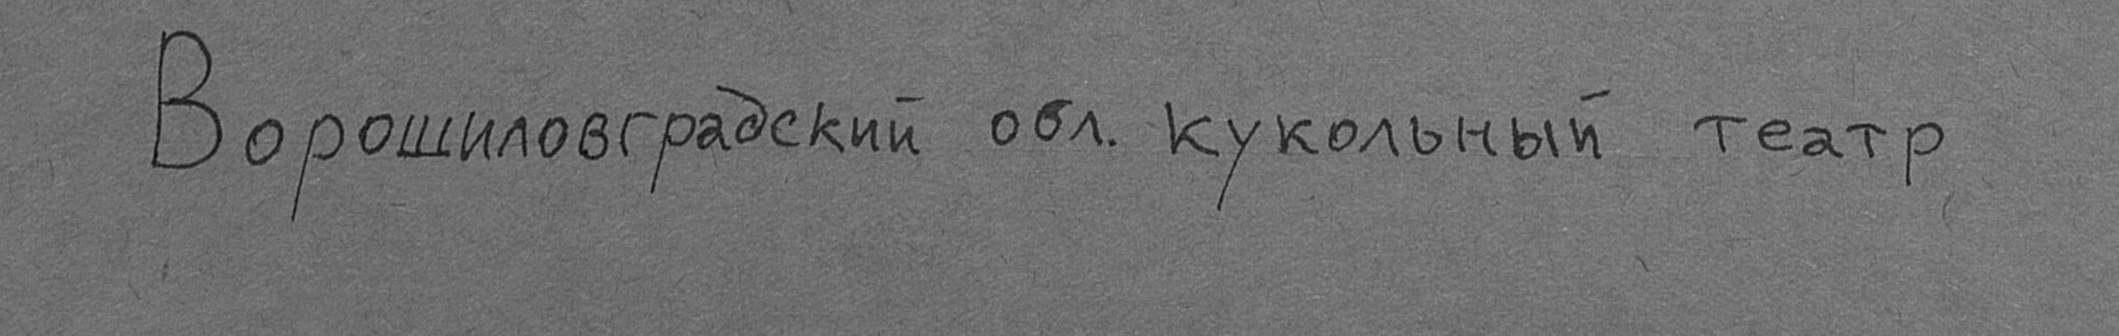 Ворошиловградский обл. кукольный театр